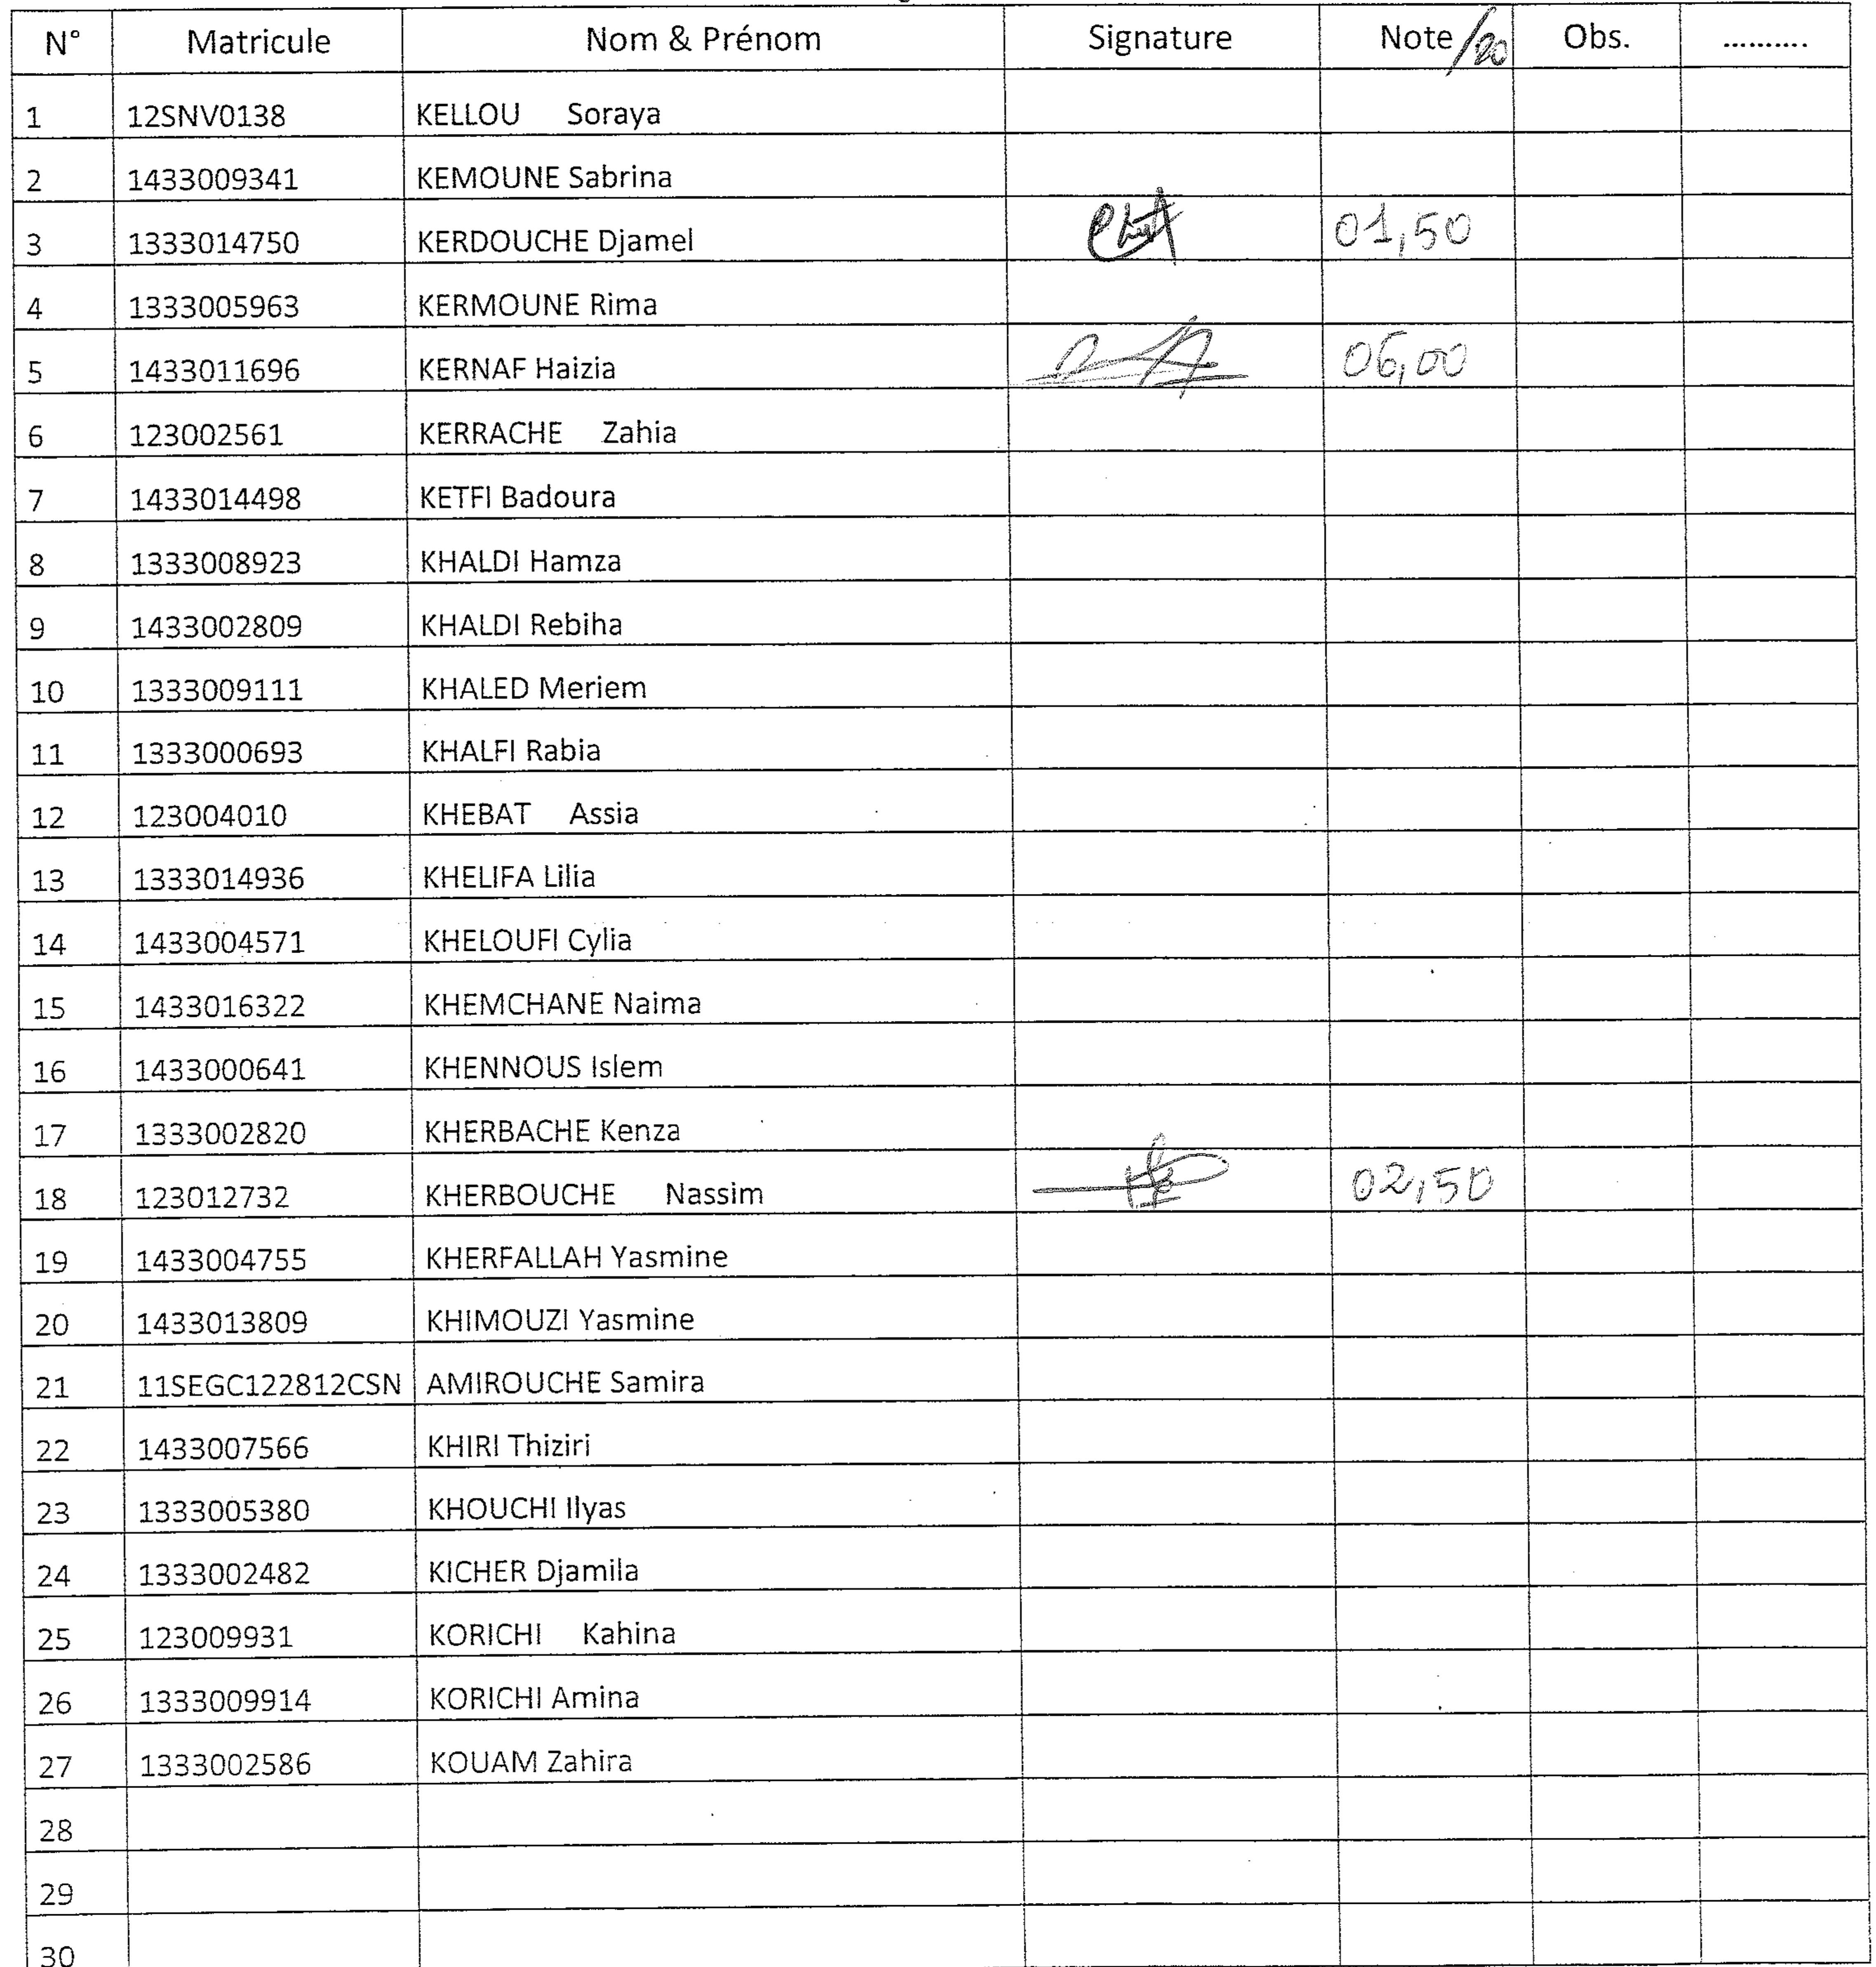 N° Matricule Nom & Prénom Signature Note /20 Obs. ..........
1 12SNV0138 KELLOU Soraya
2 1433009341 KEMOUNE Sabrina
3 1333014750 KERDOUCHE Djamel 01,50
4 1333005963 KERMOUNE Rima
5 1433011696 KERNAF Haizia 06,00
6 123002561 KERRACHE Zahia
7 1433014498 KETFI Badoura
8 1333008923 KHALDI Hamza
9 1433002809 KHALDI Rebiha
10 1333009111 KHALED Meriem
11 1333000693 KHALFI Rabia
12 123004010 KHEBAT Assia
13 1333014936 KHELIFA Lilia
14 1433004571 KHELOUFI Cylia
15 1433016322 KHEMCHANE Naima
16 1433000641 KHENNOUS Islem
17 1333002820 KHERBACHE Kenza
18 123012732 KHERBOUCHE Nassim 02,50
19 1433004755 KHERFALLAH Yasmine
20 1433013809 KHIMOUZI Yasmine
21 11SEGC122812CSN AMIROUCHE Samira
22 1433007566 KHIRI Thiziri
23 1333005380 KHOUCHI Ilyas
24 1333002482 KICHER Djamila
25 123009931 KORICHI Kahina
26 1333009914 KORICHI Amina
27 1333002586 KOUAM Zahira
28
29
30